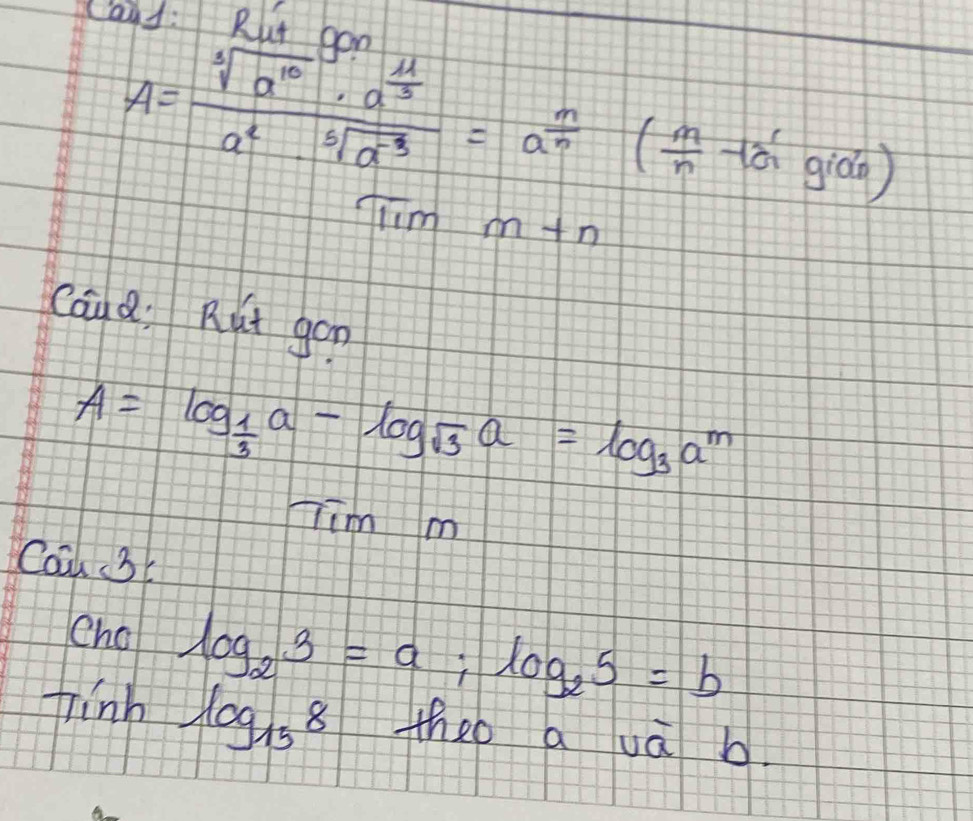 Câu 1: Rút gọn
A = \frac{\sqrt[3]{a^{10}} . a^{\frac{11}{3}}}{a^2 . \sqrt[5]{a^{-3}}} = a^{\frac{m}{n}} (\frac{m}{n} tối giản)
Tìm m + n
Câu 2: Rút gọn
A = log_{\frac{1}{3}} a - log_{\sqrt{3}} a = log_3 a^m
Tìm m
Câu 3:
Cho log_2 3 = a ; log_2 5 = b
Tính log_{15} 8 theo a và b.